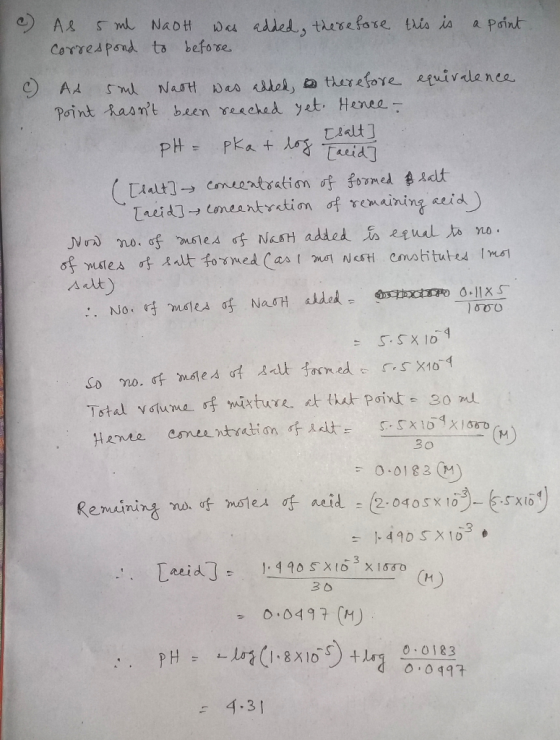 c) As 5 ml NaOH was added, therefore this is a point
correspond to before
c) As 5ml NaOH was added, therefore equivalence
point hasn't been reached yet. Hence :-
pH = pKa + log [salt]/[acid]
([salt] → concentration of formed salt
[acid] → concentration of remaining acid)
Now no. of moles of NaOH added is equal to no.
of moles of salt formed (as 1 mol NaOH constitutes 1 mol
salt)
∴ No. of moles of NaOH added = 0.11×5/1000
= 5.5×10⁻⁴
So no. of moles of salt formed = 5.5×10⁻⁴
Total volume of mixture at that point = 30 ml
Hence concentration of salt = 5.5×10⁻⁴×1000/30 (M)
= 0.0183 (M)
Remaining no. of moles of acid = (2.0405×10⁻³) – (5.5×10⁻⁴)
= 1.4905×10⁻³
∴ [acid] = 1.4905×10⁻³×1000/30 (M)
= 0.0497 (M)
∴ pH = – log (1.8×10⁻⁵) + log 0.0183/0.0497
= 4.31